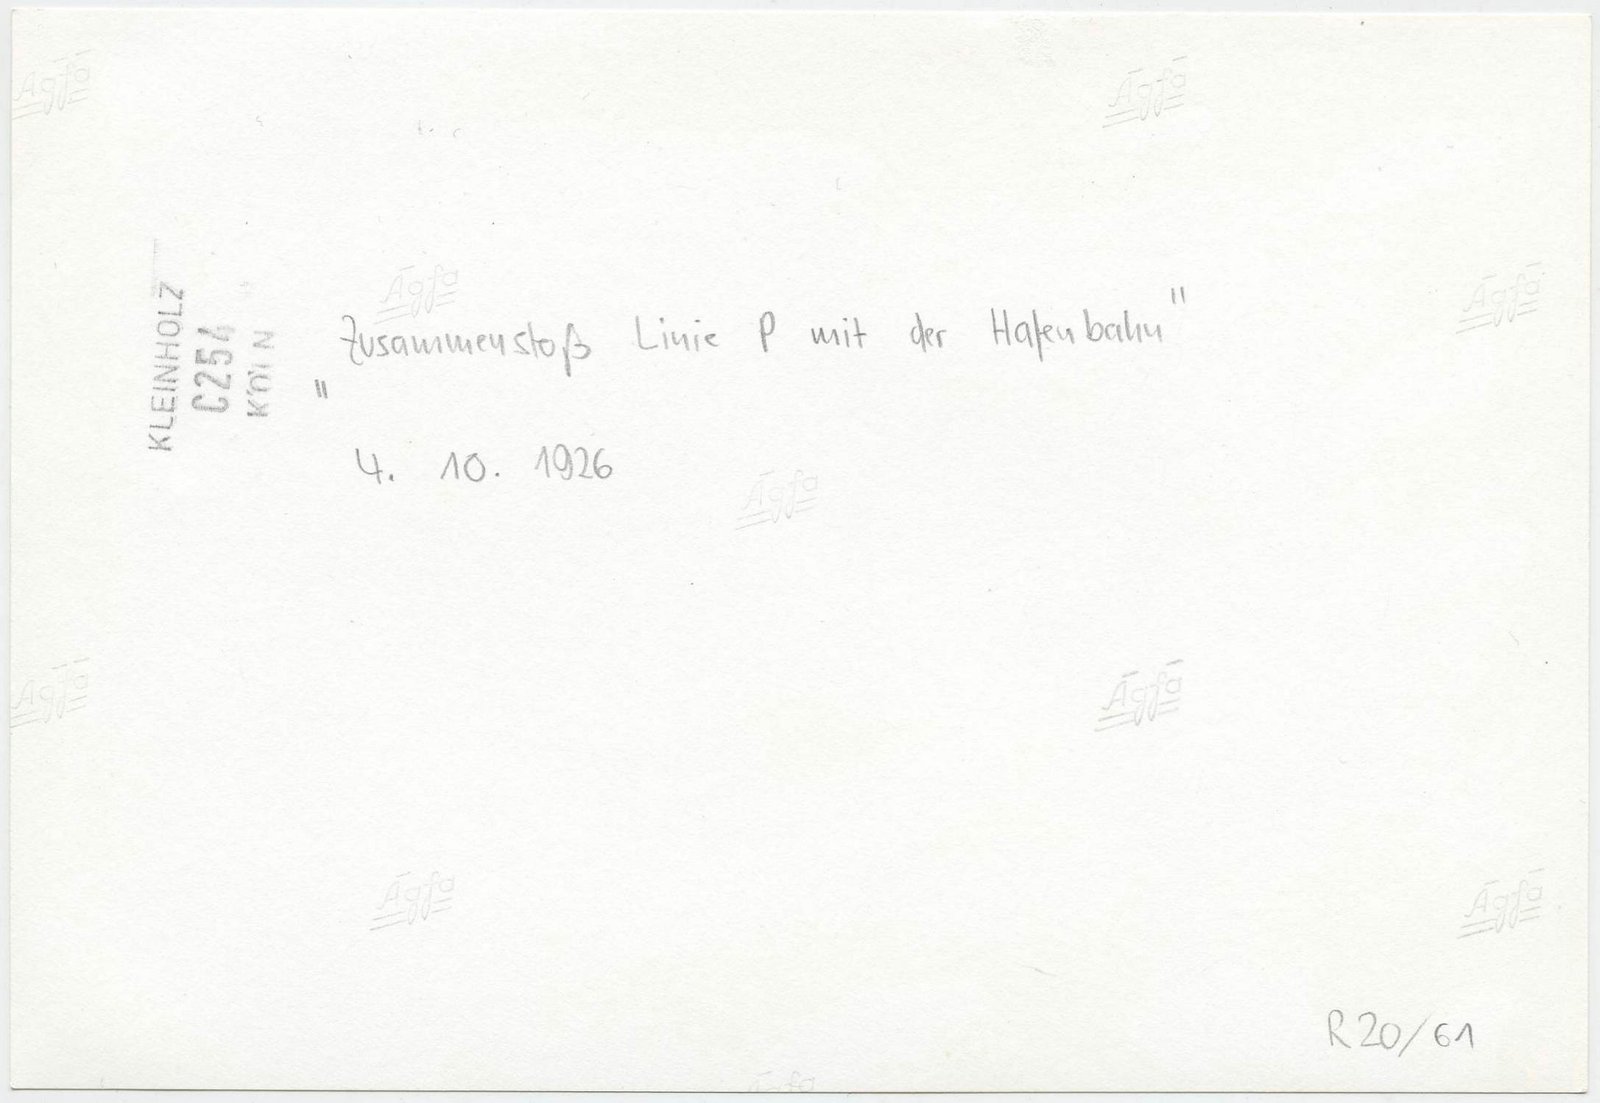 Agfa
Agfa
KLEINHOLZ
C254
KÖLN
Agfa
Agfa
„Zusammenstoß Linie P mit der Hafenbahn"
4. 10. 1926
Agfa
Agfa
Agfa
Agfa
Agfa
R20/61
Agfa